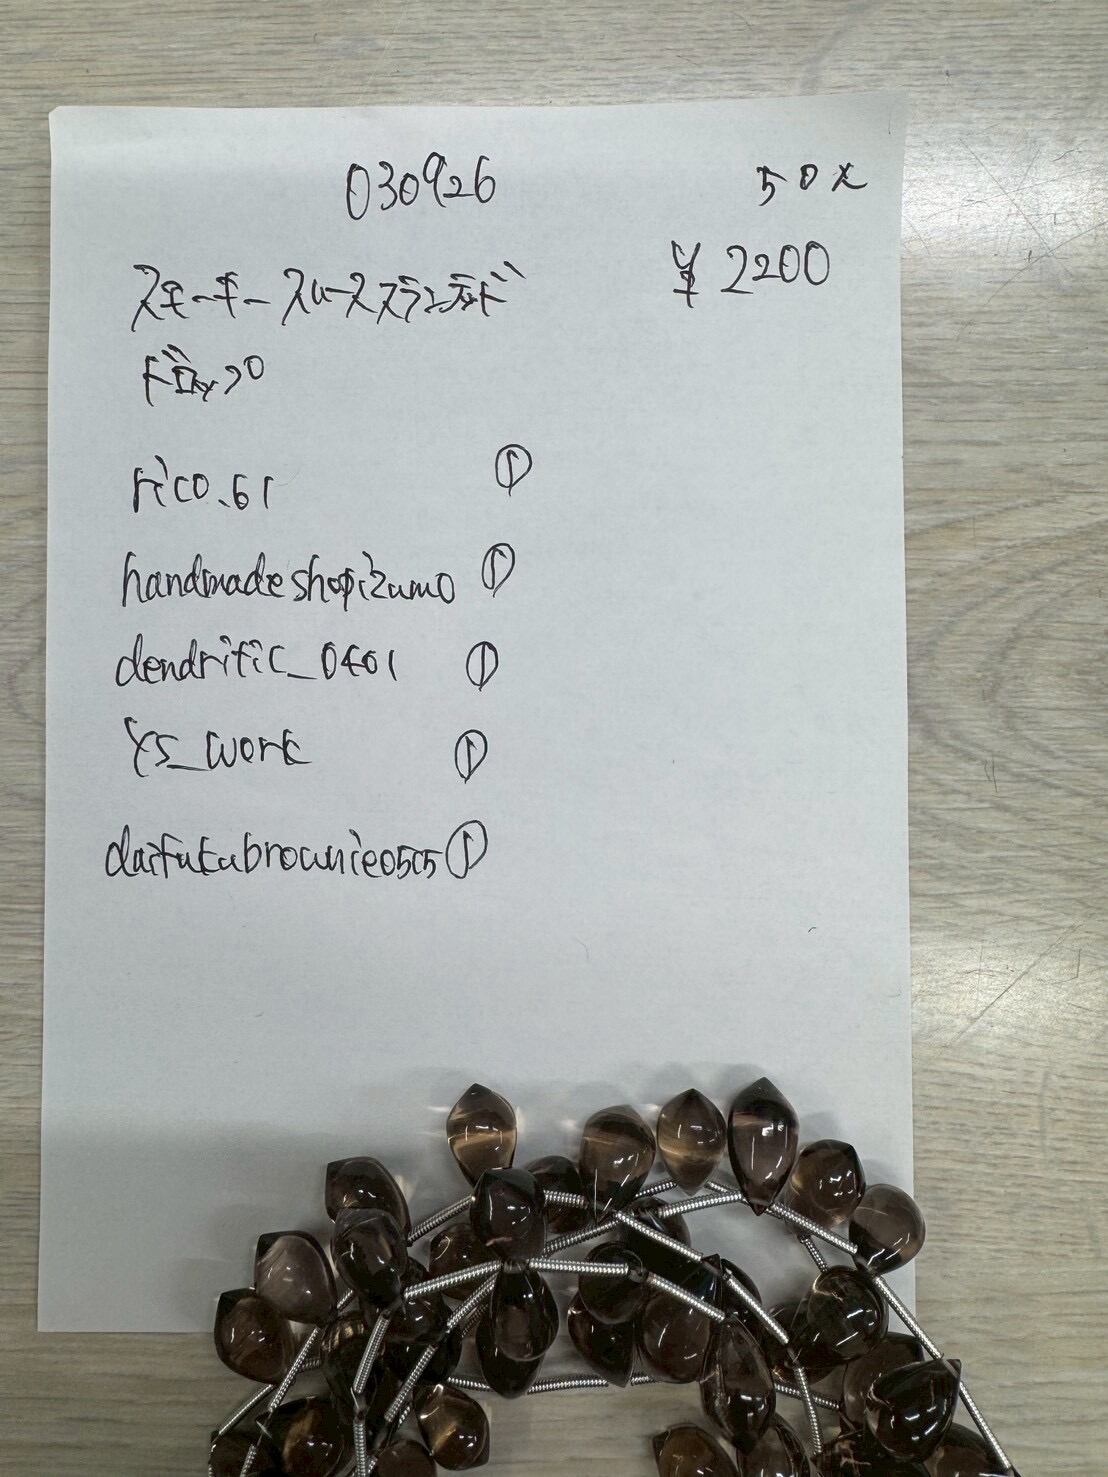 030926
50%
スモーキースムーススランテッド
¥2200
ドロップ
rico.61 ①
handmadeshopizumo ①
dendritic_0401 ①
YS_work ①
daifukubrownie0505 ①